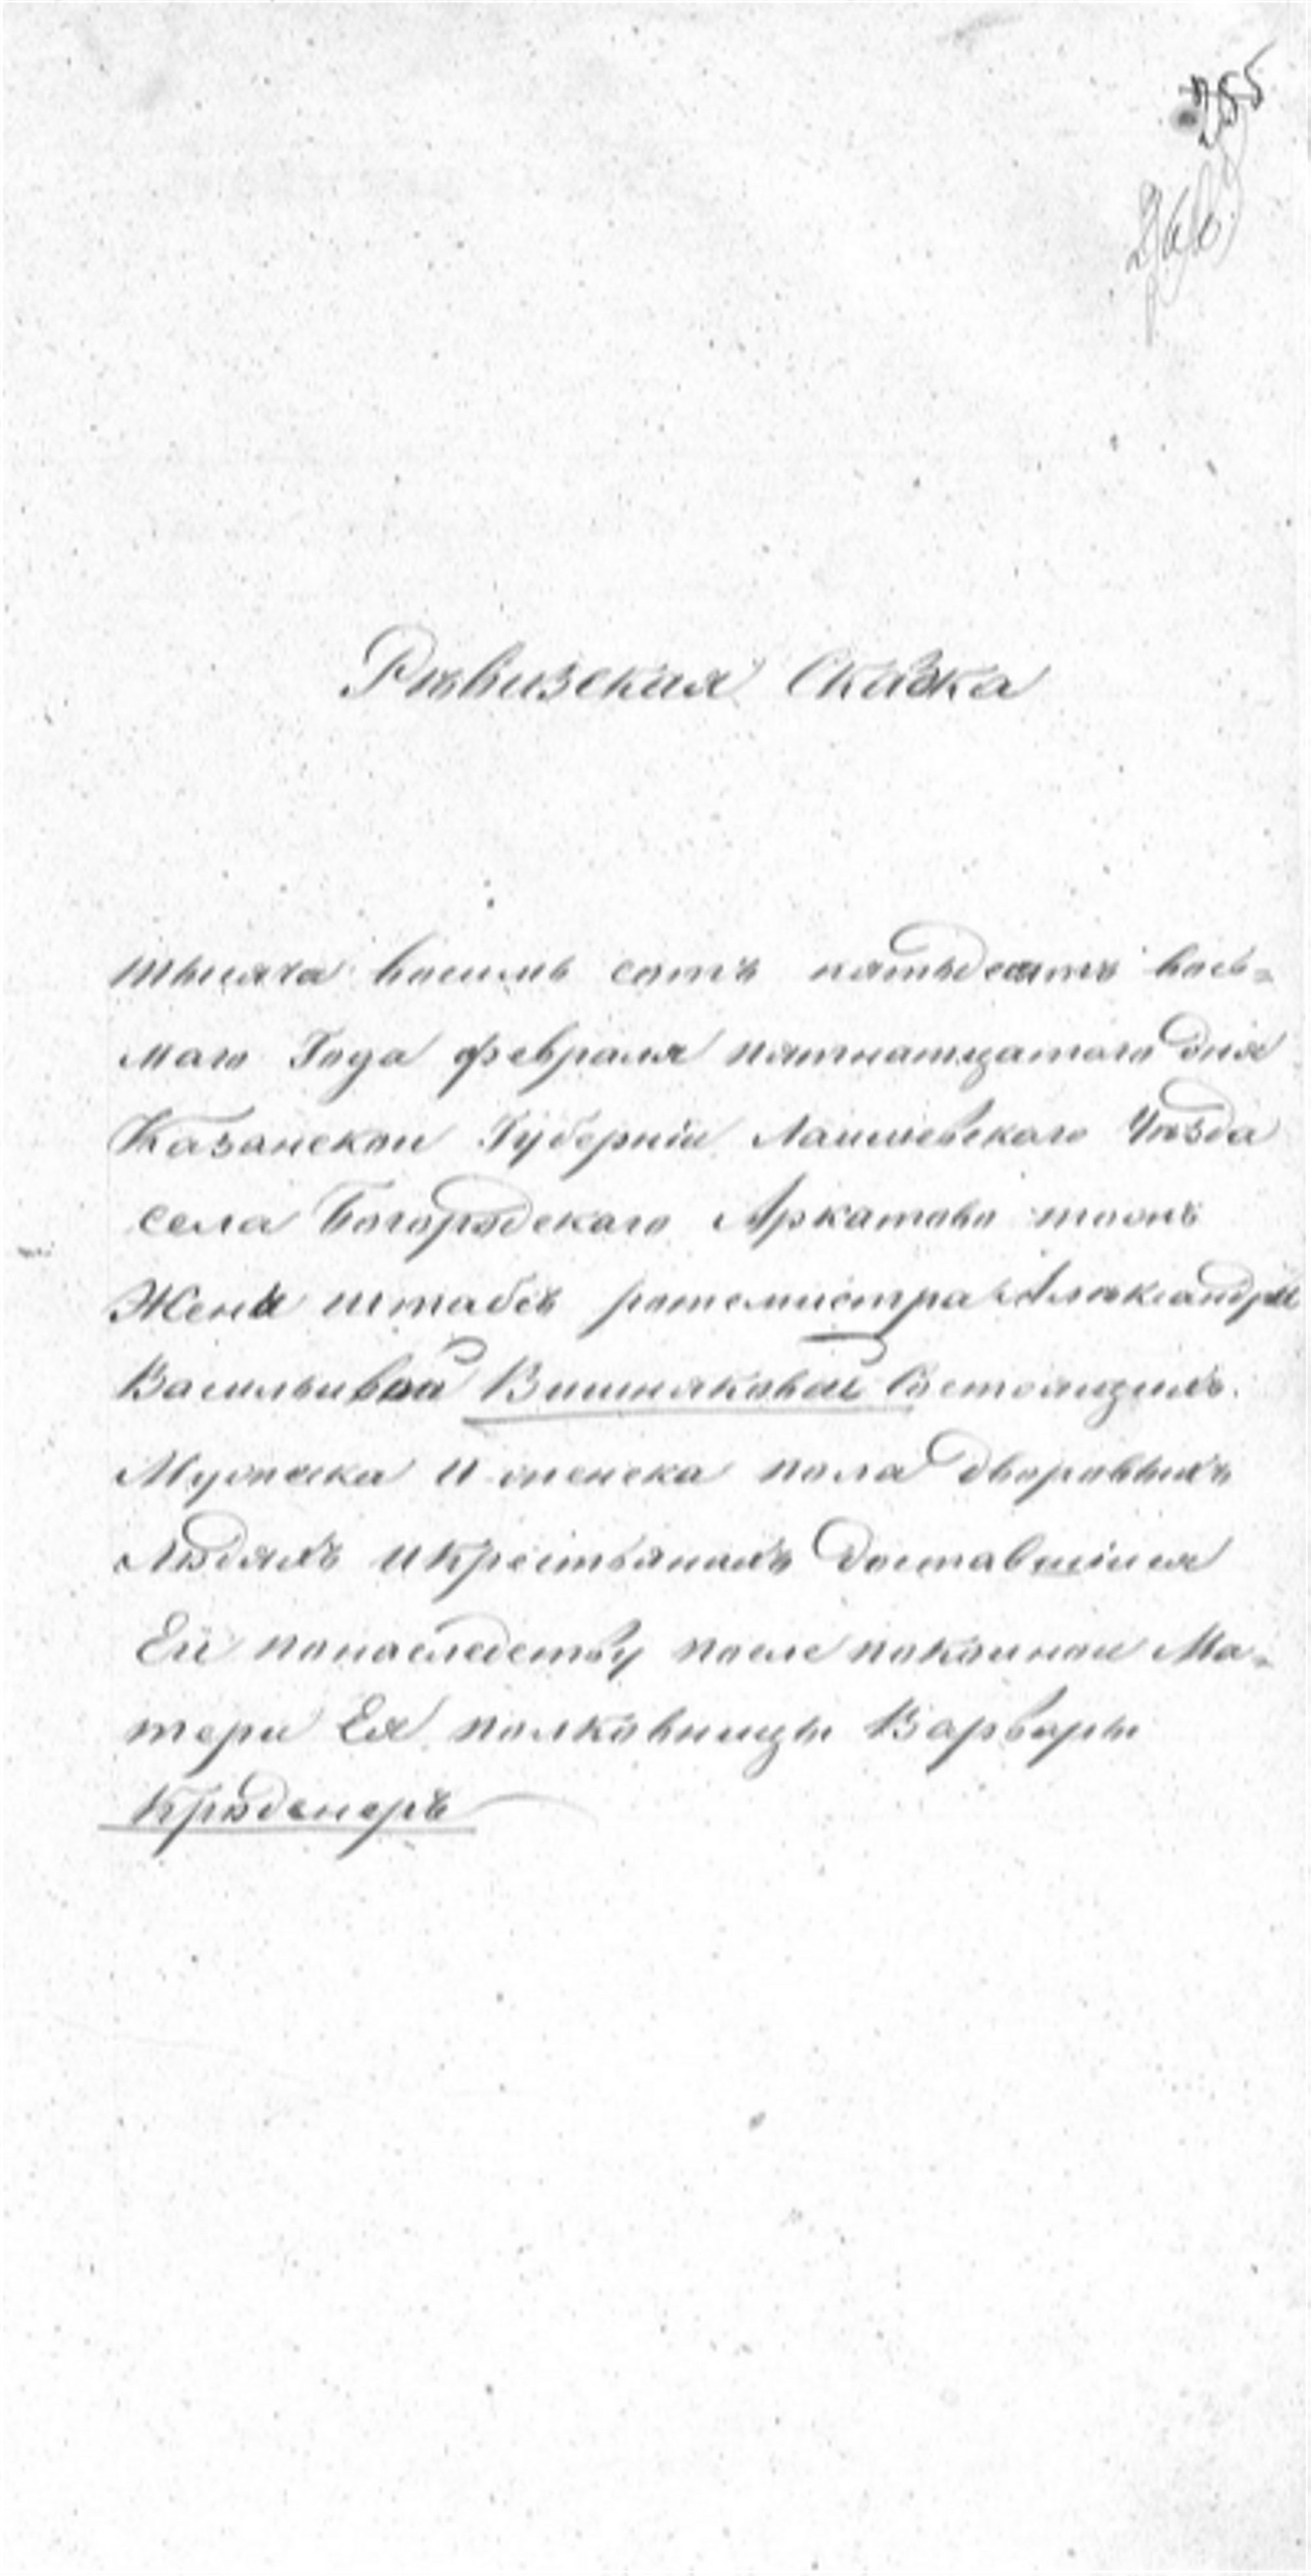 255
Рѣвизская Сказка
тысяча восимь сотъ пятьдесятъ вось=
маго Года февраля пятнатцатого дня
Казанской Губерніи Лаишевскаго Уѣзда
села Богородскаго Аркатово тожъ
Жены штабсъ ротмистра Александры
Васильивой Вишняковой Состоящихъ
Мужеска и женска пола дворовыхъ
Людяхъ икрестьянахъ доставшіися
Ей понаследству после покойной Ма=
тери Ея полковницы Варвары
Крюденеръ